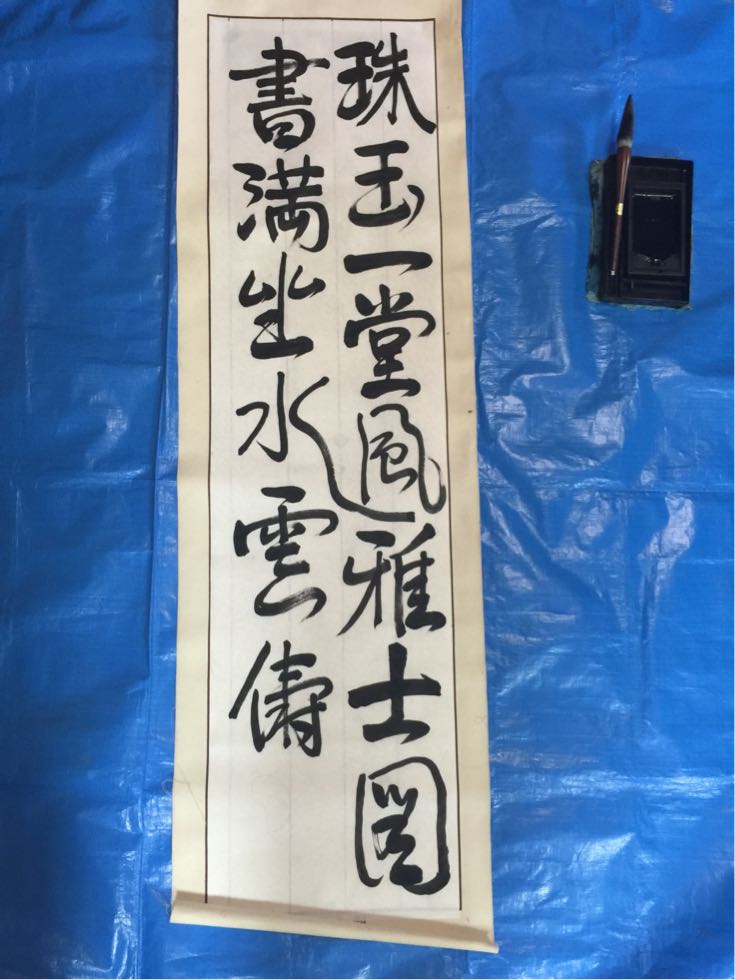 珠玉一堂風雅士図
書満坐水雲儔